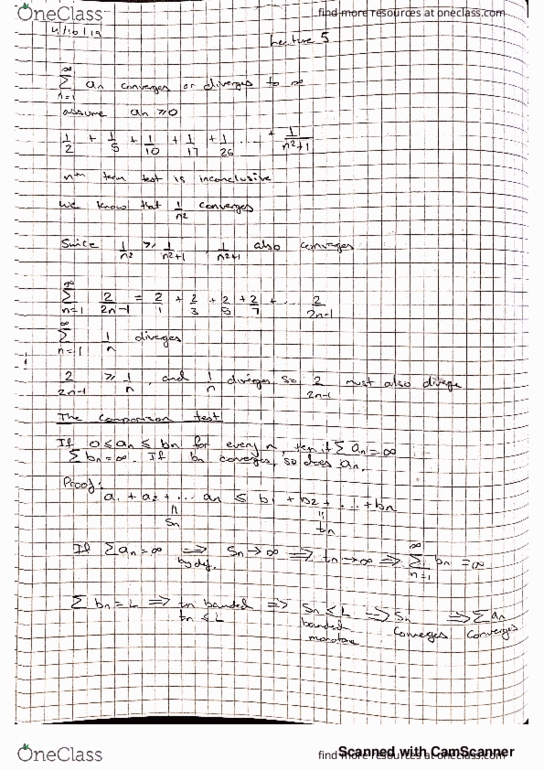 OneClass
find more resources at oneclass.com
4/10/19
Lecture 5
∞ Σ n=1 an converges or diverges to ∞
assume an ≥0
1/2 + 1/5 + 1/10 + 1/17 + 1/26 ... + 1/(n²+1)
nth term test is inconclusive
We know that 1/n² converges
Since 1/n² ≥ 1/(n²+1), 1/(n²+1) also converges
∞ Σ n=1 2/(2n-1) = 2/1 + 2/3 + 2/5 + 2/7 + ... 2/(2n-1)
∞ Σ n=1 1/n diverges
2/(2n-1) ≥ 1/n, and 1/n diverges so 2/(2n-1) must also diverge
The comparison test
If 0 ≤ an ≤ bn for every n, then if Σ an = ∞
Σ bn = ∞. If bn converges, so does an.
Proof:
a1 + a2 + ... an ≤ b1 + b2 + ... + bn
= Sn = tn
If Σ an = ∞ ⟹ by def. Sn → ∞ ⟹ tn → ∞ ⟹ ∞ Σ n=1 bn = ∞
Σ bn = L ⟹ tn bounded tn ≤ L ⟹ Sn ≤ L bounded monotone ⟹ Sn converges ⟹ Σ an converges
OneClass
find more resources at oneclass.com
Scanned with CamScanner